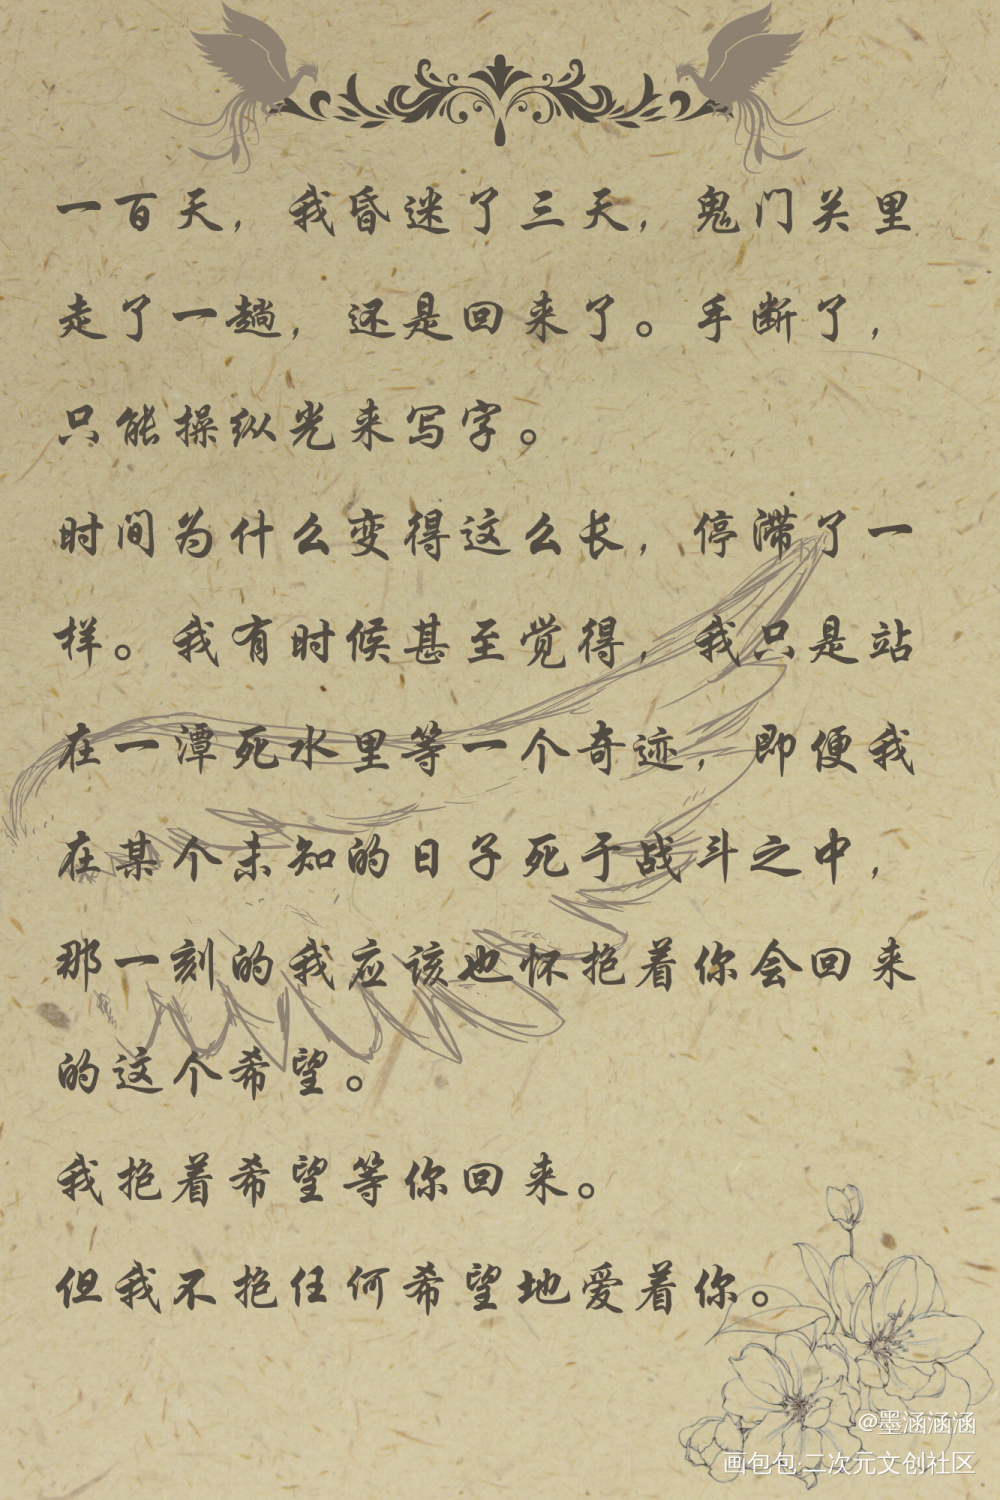 一百天，我昏迷了三天，鬼门关里
走了一趟，还是回来了。手断了，
只能操纵光来写字。
时间为什么变得这么长，停滞了一
样。我有时候甚至觉得，我只是站
在一潭死水里等一个奇迹，即便我
在某个未知的日子死于战斗之中，
那一刻的我应该也怀抱着你会回来
的这个希望。
我抱着希望等你回来。
但我不抱任何希望地爱着你。
@墨涵涵涵
画包包·二次元文创社区